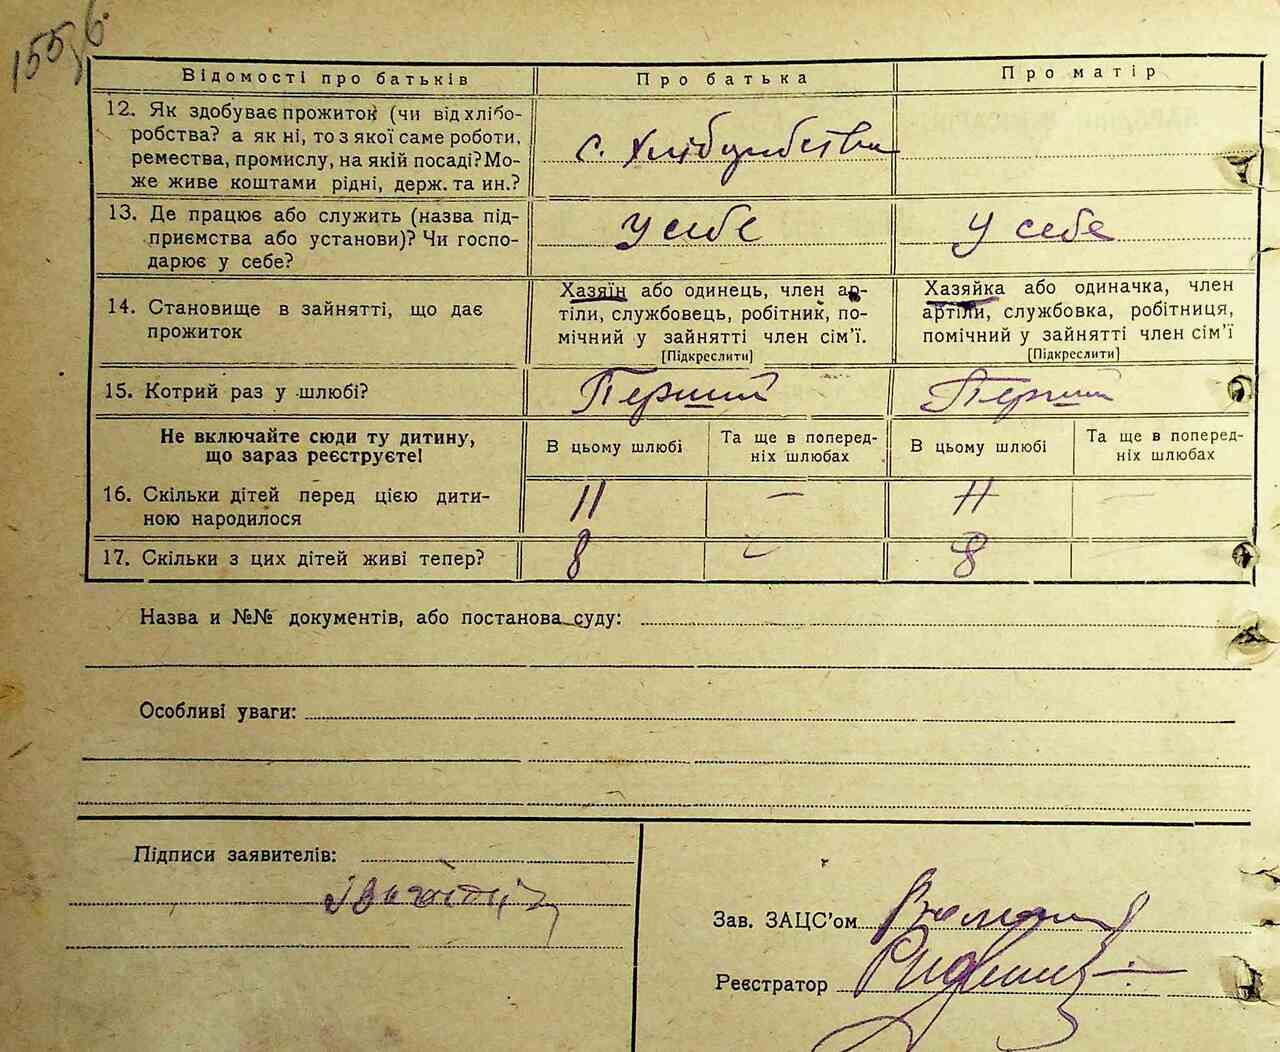 155, б.
Відомості про батьків
Про батька
Про матір
12. Як здобуває прожиток (чи від хлібо-
робства? а як ні, то з якої саме роботи,
ремества, промислу, на якій посаді? Мо-
же живе коштами рідні, держ. та ин.?
с. Хлібробства
13. Де працює або служить (назва під-
приємства або установи)? Чи госпо-
дарює у себе?
У себе
У себе
14. Становище в зайнятті, що дає
прожиток
Хазяїн або одинець, член ар-
тіли, службовець, робітник, по-
мічний у зайнятті член сім'ї.
[Підкреслити]
Хазяйка або одиначка, член
артіли, службовка, робітниця,
помічний у зайнятті член сім'ї
[Підкреслити]
15. Котрий раз у шлюбі?
Перший
Перший
Не включайте сюди ту дитину,
що зараз реєструєте!
В цьому шлюбі
Та ще в поперед-
ніх шлюбах
В цьому шлюбі
Та ще в поперед-
ніх шлюбах
16. Скільки дітей перед цією дити-
ною народилося
11
—
11
—
17. Скільки з цих дітей живі тепер?
8
—
8
—
Назва и №№ документів, або постанова суду:
Особливі уваги:
Підписи заявителів:
Зав. ЗАЦС'ом
Реєстратор